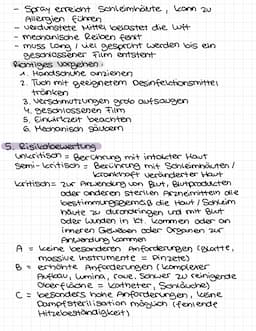 - Spray erreicht Schleimhäute, kann zu
Allergien führen
- verdunstete Mittel belastet die Luft
- mechanische Reiben fehlt
- muss lang / viel gesprüht werden bis ein
geschlossener Film entsteht
Richtiges Vorgehen:
1. Handschuhe anziehen
2. Tuch mit geeignetem Desinfektionsmittel
tränken
3. Verschmutzungen grob aufsaugen
4. geschlossenen Film
5. Einwirkzeit beachten
6. Mechanisch säubern
5. Risikobewertung
unkritisch = Berührung mit intakter Haut
semi-kritisch = Berührung mit Schleimhäuten /
krankhaft veränderter Haut
kritisch = zur Anwendung von Blut, Blutprodukten
oder anderen sterilen Arzneimitteln die
bestimmungsgemäß die Haut / Schleim
häute zu durchdringen und mit Blut
oder Wunden in Kt. kommen oder an
inneren Geweben oder Organen zur
Anwendung kommen
A = keine besonderen Anforderungen (glatte,
massive Instrumente = Pinzette)
B = erhöhte Anforderungen (komplexer
Aufbau, Lumina, raue, schwer zu reinigende
Oberfläche = Katheter, Schläuche)
C = besonders hohe Anforderungen, keine
Dampfsterilisation möglich (fehlende
Hitzebeständigkeit)